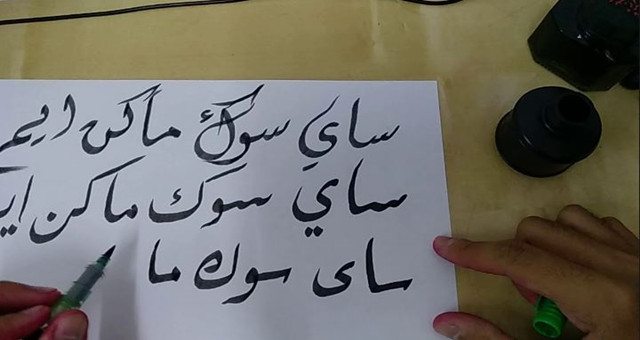 ساي سوك ماكن ايم
ساي سوك ماكن اي
ساى سوك ما